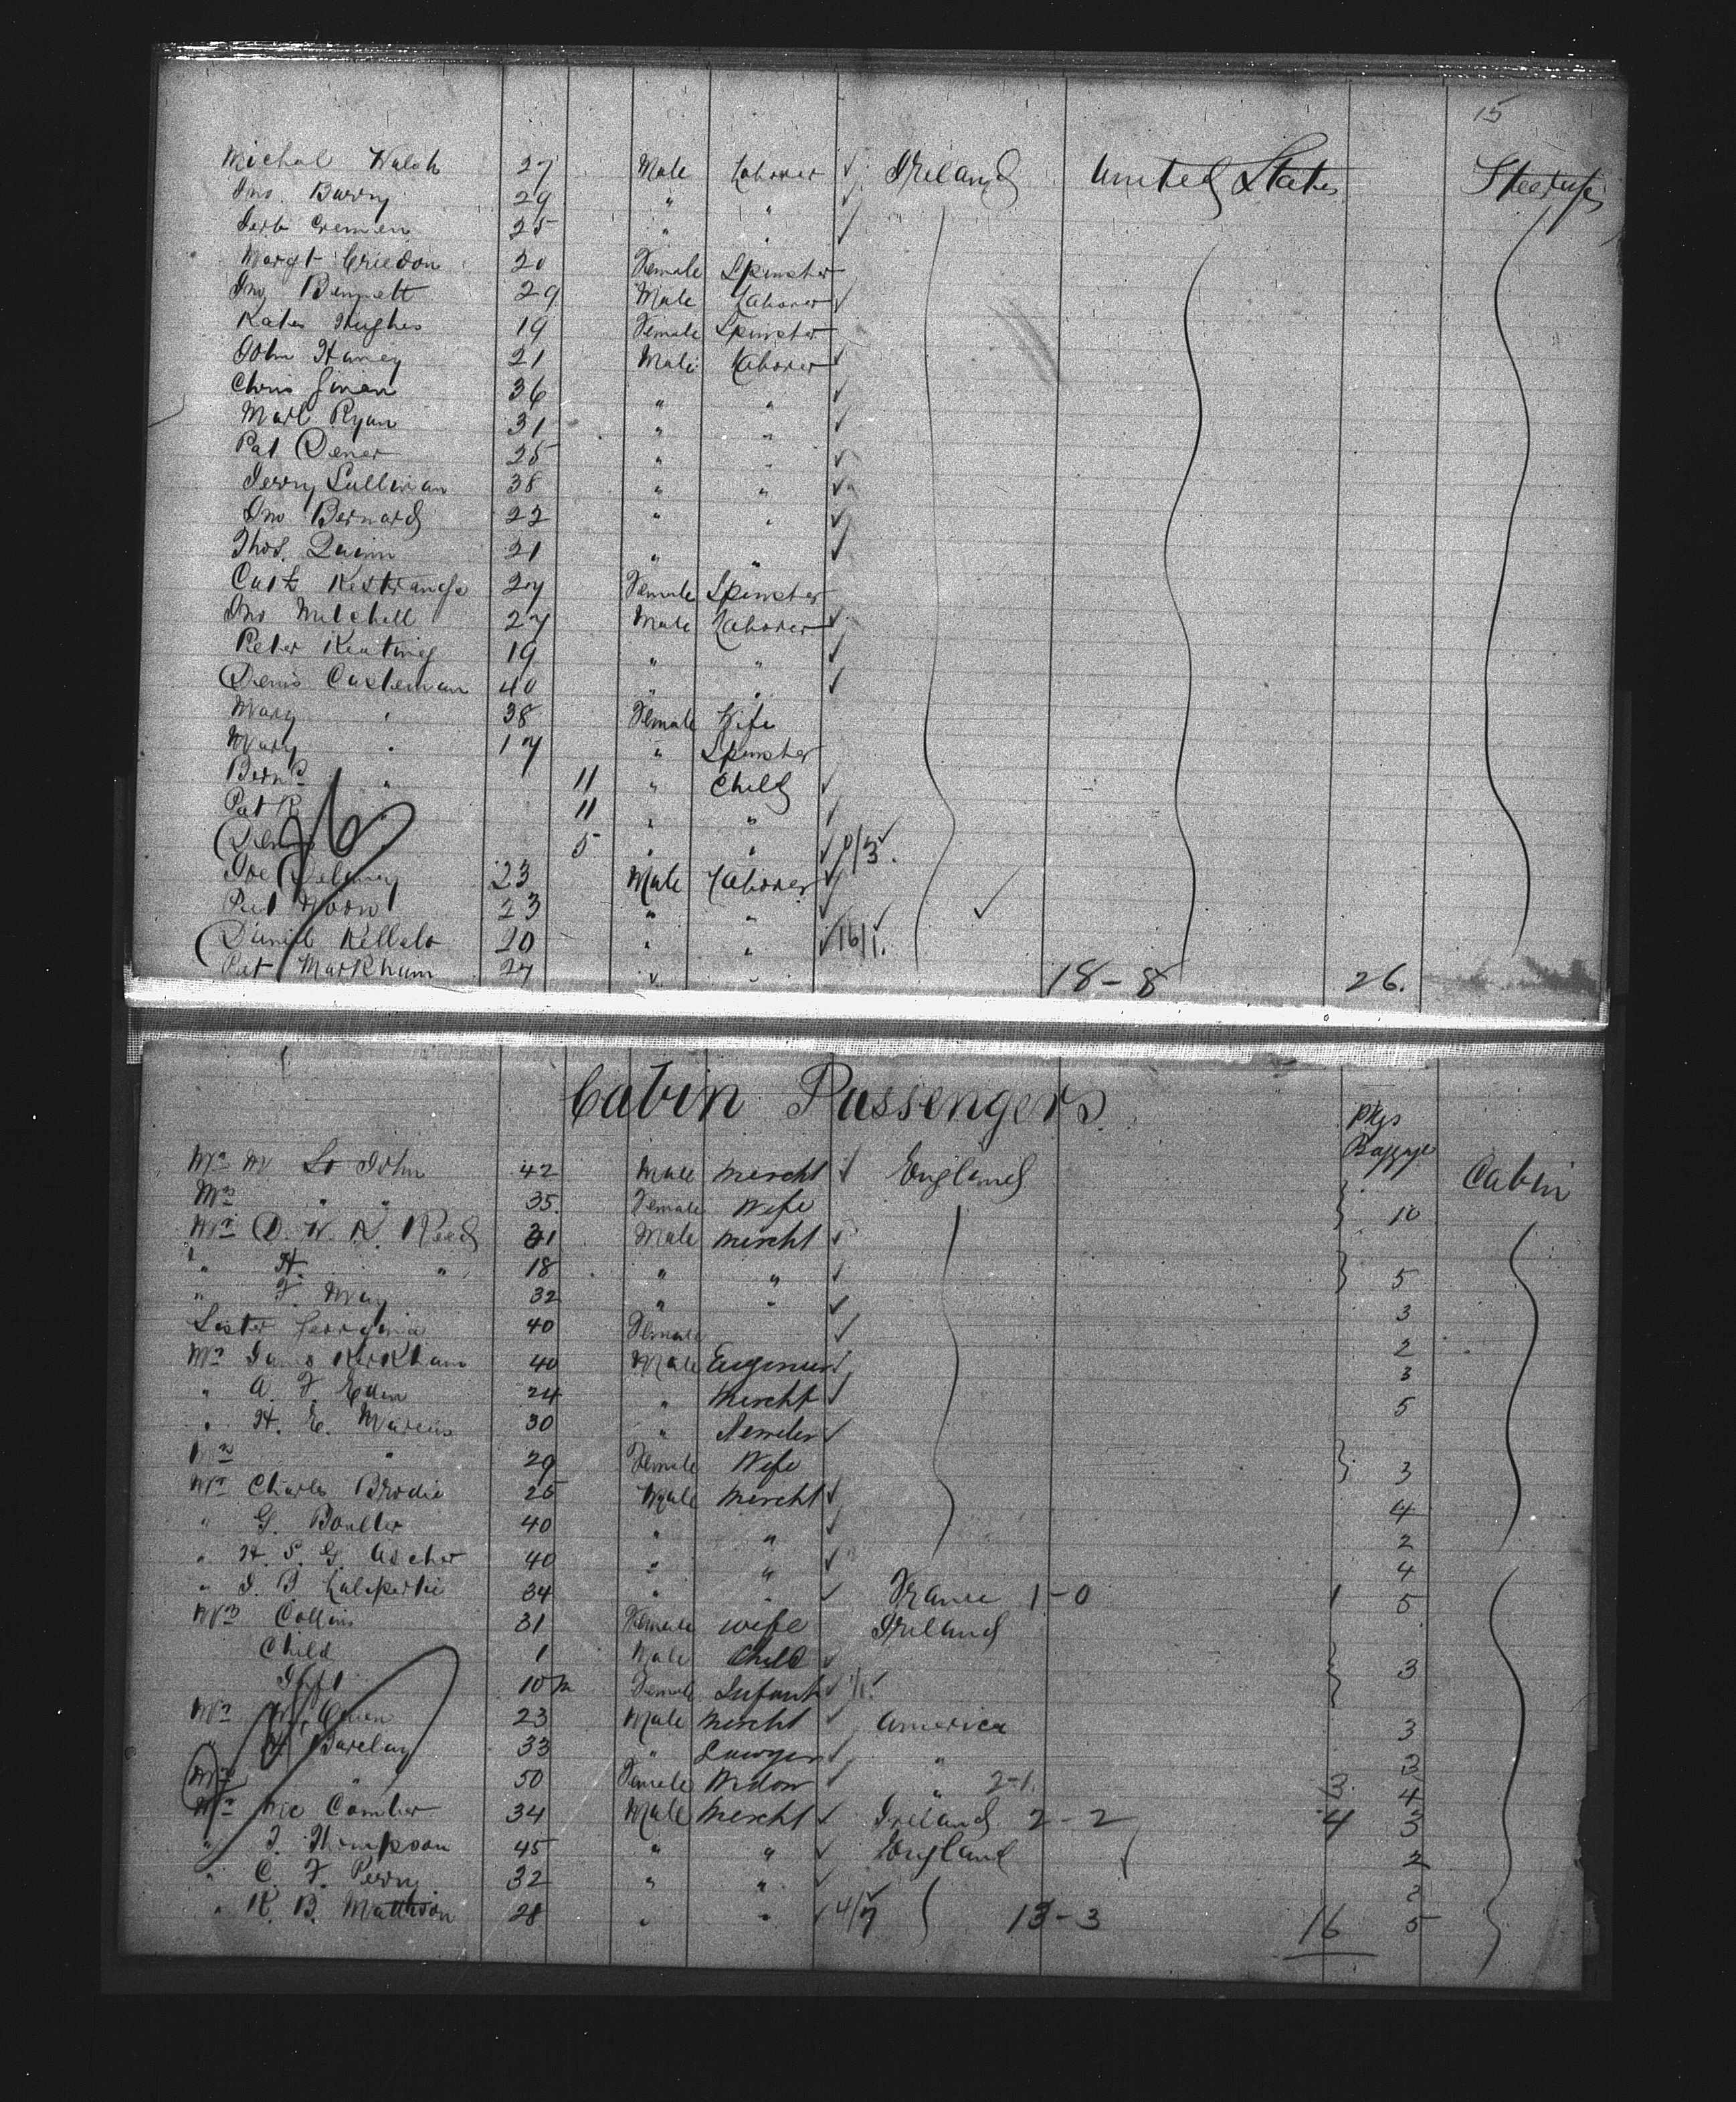 15
Michal Walsh 27 Male Laborer ✓ Ireland United States Steerage
Jno. Barry 29 " " ✓
Jerh Cremen 25 " " ✓
Margt Creedon 20 Female Spinster
Jno Bennett 29 Male Laborer ✓
Kate Hughes 19 Female Spinster
John Haney 21 Male Laborer ✓
Chris 36 " " ✓
Ryan 31 " " ✓
Pat 25 " " ✓
Jerry Sullivan 38 " " ✓
Jno Bernard 22 " " ✓
Thos. Quinn 21 " " ✓
27 Female Spinster
Jno Mitchell 27 Male Laborer ✓
Peter Keating 19 " " ✓
Denis Casteman 40 " " ✓
Mary " 38 Female Wife
Mary " 17 " Spinster
" 11 " Child ✓
Patk " 11 " " ✓
5 " " ✓ 8/3 ✓
Joe Delaney 23 Male Laborer ✓
Pat 23 " " ✓ ✓
Daniel 20 " " ✓ 16/1. ✓
Pat Markhum 27 " " 18-8 26.
Cabin Passengers.
Pkgs
Baggage
Mr W St John 42 Male Mercht ✓ England Cabin
Mrs " " 35. Female Wife 10
Mr D. W. R. Reed 31 Male Mercht ✓
" H. " 18 " " ✓ 5
" F. May 32 " " ✓ 3
Sister Georgina 40 Female ✓ 2
Mr James Kirkham 40 Male Engineer ✓ 3
" A. F. Eden 24 " Mercht ✓ 5
" H. E. Marcus 30 " ✓
Mrs " 29 Female Wife 3
Mr Charles Brodie 25 Male Mercht ✓ 4
" G. Boulter 40 " " ✓ 2
" H. S. G. Ascher 40 " " ✓ 4
" J. B. 34 " " ✓ France 1-0 1 5
Mrs Collins 31 Female wife Ireland
Child 1 Male Child ✓ 3
Inft 10 m Female Infant ✓ 1/1. ✓
Mr 23 Male Mercht ✓ America 3
" H. Barclay 33 " Lawyer ✓ " 3
Mrs " 50 Female Widow ✓ " 2-1. 3. 4
Mr Mc Comber 34 Male Mercht ✓ Ireland 2-2 4 3
" J. Thompson 45 " " ✓ England 2
" C. F. Perry 32 " " ✓ 2
" R. B. Mattison 28 " " ✓ 4/7 ✓ 13-3 16 5